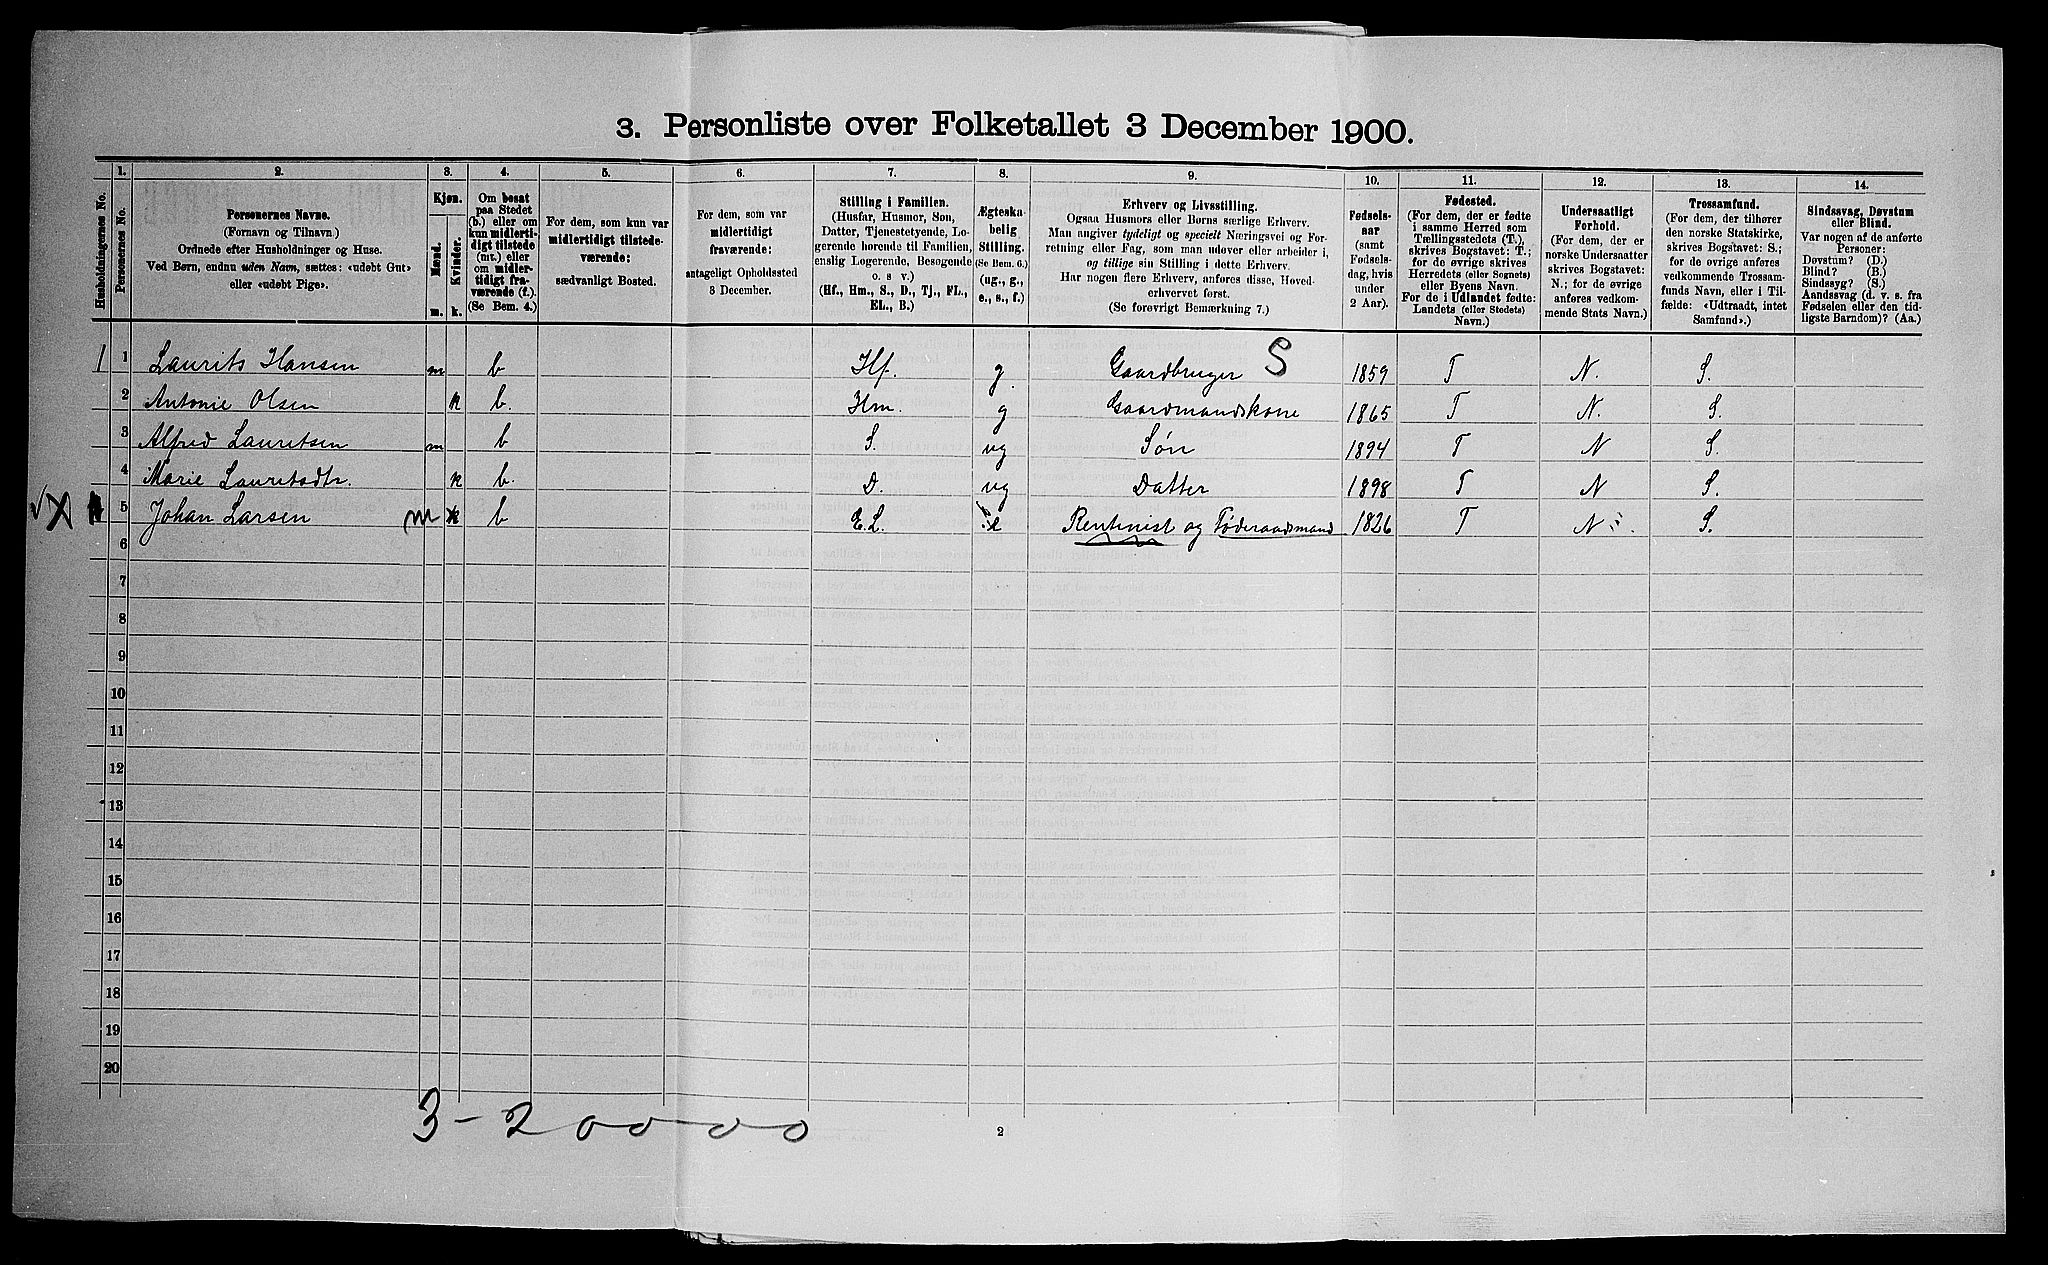 3. Personliste over Folketallet 3 December 1900.
1. 2. 3. 4. 5. 6. 7. 8. 9. 10. 11. 12. 13. 14.
Husholdningernes No.
Personernes No.
Personernes Navne.
(Fornavn og Tilnavn.)
Ordnede efter Husholdninger og Huse.
Ved Børn, endnu uden Navn, sættes: «udøbt Gut»
eller «udøbt Pige».
Kjøn.
Mænd.
Kvinder.
m. k.
Om bosat
paa Stedet
(b.) eller om
kun midlerti-
digt tilstede
(mt.) eller
om midler-
tidigt fra-
værende (f.).
(Se Bem. 4.)
For dem, som kun var
midlertidigt tilstede-
værende:
sædvanligt Bosted.
For dem, som var
midlertidigt
fraværende:
antageligt Opholdssted
3 December.
Stilling i Familien.
(Husfar, Husmor, Søn,
Datter, Tjenestetyende, Lo-
gerende hørende til Familien,
enslig Logerende, Besøgende
o. s v.)
(Hf., Hm., S., D., Tj., FL.,
EL., B.)
Ægteska-
belig
Stilling.
(Se Bem. 6.)
(ug., g.,
e., s., f.)
Erhverv og Livsstilling.
Ogsaa Husmors eller Børns særlige Erhverv.
Man angiver tydeligt og specielt Næringsvei og For-
retning eller Fag, som man udøver eller arbeider i,
og tillige sin Stilling i dette Erhverv.
Har nogen flere Erhverv, anføres disse, Hoved-
erhvervet først.
(Se forøvrigt Bemærkning 7.)
Fødsels-
aar
(samt
Fødsels-
dag, hvis
under
2 Aar).
Fødested.
(For dem, der er fødte
i samme Herred som
Tællingsstedets (T.),
skrives Bogstavet: T.;
for de øvrige skrives
Herredets (eller Sognets)
eller Byens Navn.
For de i Udlandet fødte:
Landets (eller Stedets)
Navn.)
Undersaatligt
Forhold.
(For dem, der er
norske Undersaatter
skrives Bogstavet:
N.; for de øvrige
anføres vedkom-
mende Stats Navn.)
Trossamfund.
(For dem, der tilhører
den norske Statskirke,
skrives Bogstavet: S.;
for de øvrige anføres
vedkommende Trossam-
funds Navn, eller i Til-
fælde: «Udtraadt, intet
Samfund».)
Sindssvag, Døvstum
eller Blind.
Var nogen af de anførte
Personer:
Døvstum? (D.)
Blind? (B.)
Sindssyg? (S.)
Aandssvag (d. v. s. fra
Fødselen eller den tid-
ligste Barndom)? (Aa.)
1 1 Laurits Hansen m b Hf. g. Gaardbruger S 1859 T N. S.
2 Antonie Olsen k b. Hm. g Gaardmandskone 1865 T N. S.
3 Alfred Lauritsen m b S. ug Søn 1894 T N S.
4 Marie Lauritsdtr. k b. D. ug Datter 1898 T N S.
√X 5 Johan Larsen m k b E.L. e Rentenist og Føderaadsmand 1826 T N S.
6
7
8
9
10
11
12
13
14
15
16
17
18
19
20
3 - 2 0 0 0 0
2